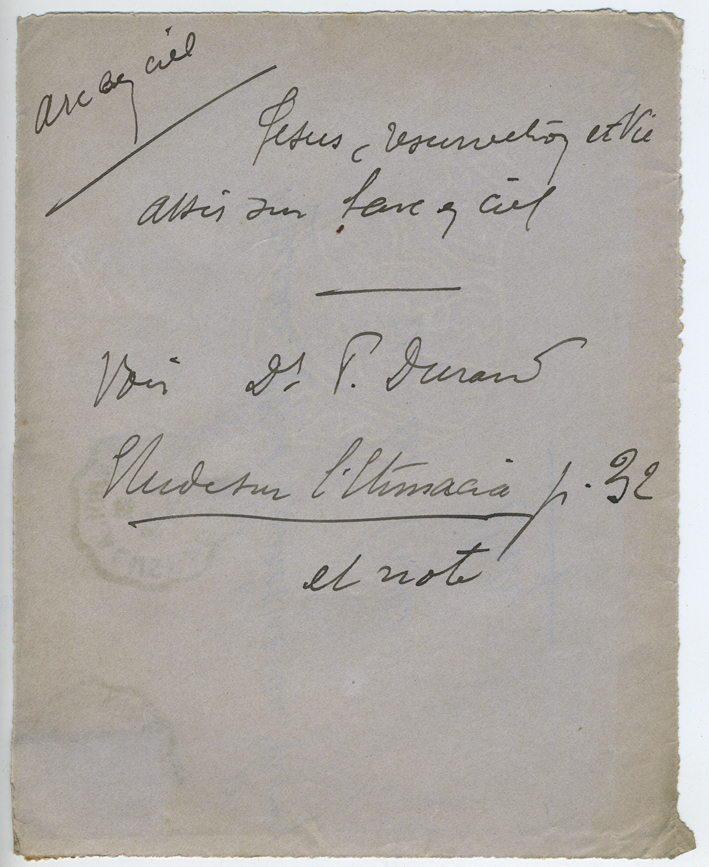 arc en ciel
Jesus, resurrection et Vie
assis sur l'arc en ciel
Voir Dr P. Durand
Etude sur l'Etimacia p. 32
et note